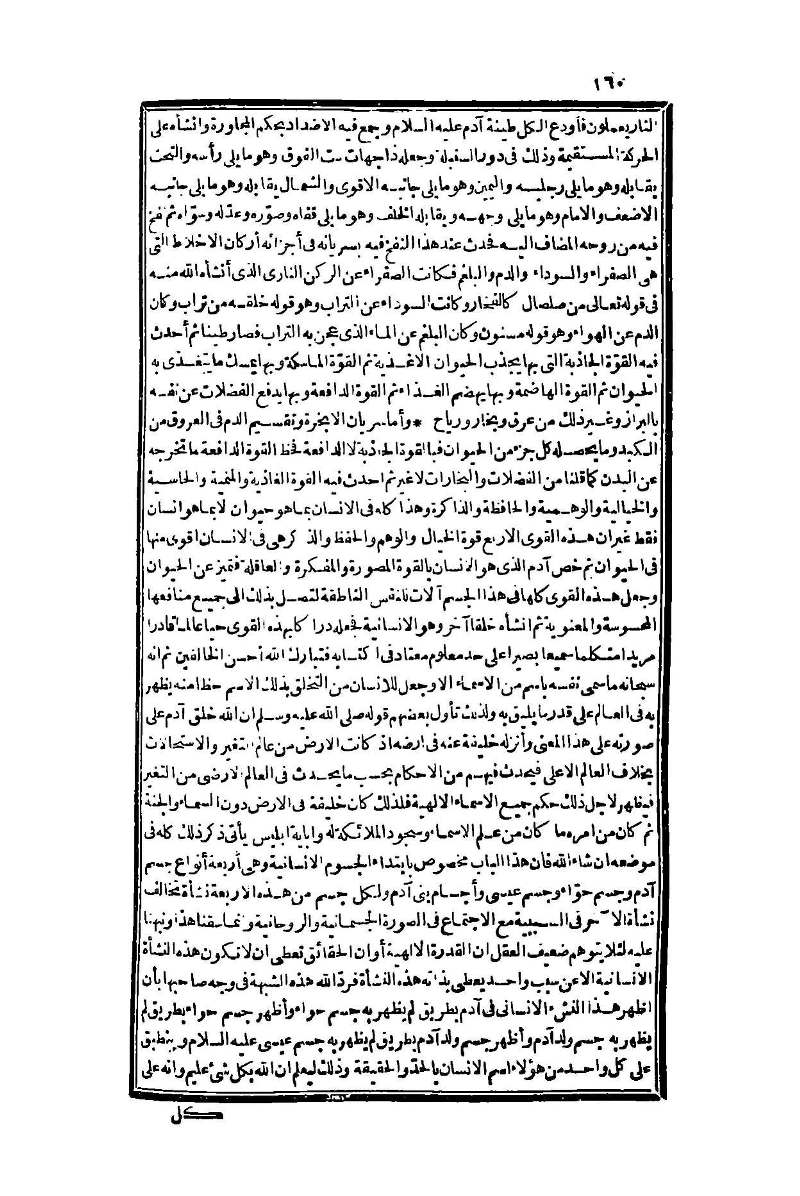 ١٦٠
النار يعملون فأودع الكل طينة آدم عليه السلام وجمع فيه الاضداد بحكم المجاورة وانشأه على
الحركة المستقيمة وذلك فى دور السنبلة وجعله ذا جهات ست الفوق وهو ما يلى رأسه والتحت
يقابله وهو ما يلى رجليه واليمين وهو ما يلى جانبه الاقوى والشمال يقابله وهو ما يلى جانبه
الاضعف والامام وهو ما يلى وجهه ويقابله الخلف وهو ما يلى قفاه وصوّره وعدله وسوّاه ثم نفخ
فيه من روحه المضاف اليه فحدث عند هذا النفخ فيه بسريانه فى أجزائه أركان الاخلاط التى
هى الصفراء والسوداء والدم والبلغم فكانت الصفراء عن الركن النارى الذى أنشأه الله منه
فى قوله تعالى من صلصال كالفخار وكانت السوداء عن التراب وهو قوله خلقه من تراب وكان
الدم عن الهواء وهو قوله مسنون وكان البلغم عن الماء الذى عجن به التراب فصار طينا ثم أحدث
فيه القوة الجاذبة التى بها يجذب الحيوان الاغذية ثم القوة الماسكة وبها يمسك ما يتغذى به
الحيوان ثم القوة الهاضمة وبها يهضم الغذاء ثم القوة الدافعة وبها يدفع الفضلات عن نفسه
بالبراز وغير ذلك من عرق وبخار ورياح * وأما سريان الابخرة وتقسيم الدم فى العروق من
الكبد وما يحصله كل جزء من الحيوان فبالقوة الجاذبة لا الدافعة فحظ القوة الدافعة ما تخرجه
عن البدن كما قلنا من الفضلات والبخارات لا غير ثم احدث فيه القوة الغاذية والمنمية والحاسية
والخيالية والوهمية والحافظة والذاكرة وهذا كله فى الانسان بما هو حيوان لا بما هو انسان
فقط غير ان هذه القوى الاربع قوة الخيال والوهم والحفظ والذكر هى فى الانسان اقوى منها
فى الحيوان ثم خص آدم الذى هو الانسان بالقوة المصورة والمفكرة والعاقلة فتميز عن الحيوان
وجعل هذه القوى كلها فى هذا الجسم آلات للنفس الناطقة لتصل بذلك الى جميع منافعها
المحسوسة والمعنوية ثم انشأه خلقا آخر وهو الانسانية فجعله درا كا بهذه القوى حيا عالما قادرا
مريدا متكلما سميعا بصيرا على حد معلوم معتاد فى اكتسابه فتبارك الله أحسن الخالقين ثم انه
سبحانه ما سمى نفسه باسم من الاسماء الا وجعل للانسان من التخلق بذلك الاسم حظا منه يظهر
به فى العالم على قدر ما يليق به ولذلك تأول بعضهم قوله صلى الله عليه وسلم ان الله خلق آدم على
صورته على هذا المعنى وأنزله خليفة عنه فى ارضه اذ كانت الارض من عالم التغير والاستحالات
بخلاف العالم الاعلى فيحدث فيهم من الاحكام بحسب ما يحدث فى العالم الارضى من التغير
فيظهر لاجل ذلك حكم جميع الاسماء الالهية فلذلك كان خليفة فى الارض دون السماء والجنة
ثم كان من امره ما كان من علم الاسماء وسجود الملائكة له واباية ابليس يأتى ذكر ذلك كله فى
موضعه ان شاء الله فان هذا الباب مخصوص بابتداء الجسوم الانسانية وهى أربعة أنواع جسم
آدم وجسم حوّاء وجسم عيسى وأجسام بنى آدم ولكل جسم من هذه الاربعة نشأة تخالف
نشأة الآخر فى السببية مع الاجتماع فى الصورة الجسمانية والروحانية وانما سقنا هذا ونبهنا
عليه لئلا يتوهم ضعيف العقل ان القدرة الالهية أو ان الحقائق تعطى ان لا تكون هذه النشأة
الانسانية الا عن سبب واحد يعطى بذاته هذه النشأة فردّ الله هذه الشبهة فى وجه صاحبها بأن
اظهر هذا النشء الانسانى فى آدم بطريق لم يظهر به جسم حواء وأظهر جسم حواء بطريق لم
يظهر به جسم ولد آدم وأظهر جسم ولد آدم بطريق لم يظهر به جسم عيسى عليه السلام وينطبق
على كل واحد من هؤلاء اسم الانسان بالحدّ والحقيقة وذلك ليعلم ان الله بكل شئ عليم وانه على
كل